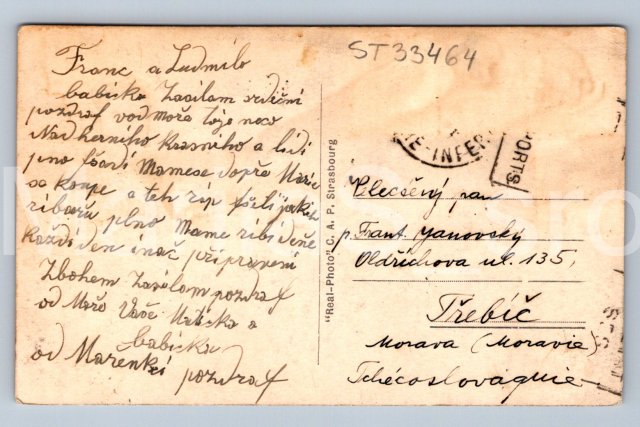 ST33464
Franc a Ludmilo
babicko Zasilam srdečni
pozdraf vod moře toje neco
Nadherniho Krasniho a lidi
plno
se koupe a teh rip
ribařu plno Mame ribi deňe
každi den inač připraveni
Zbohem Zasilam pozdraf
od Maře Vaše Mařka a
babicka
od Marenki pozdraf
"Real-Photo" C. A. P. Strasbourg
RE-INFER
PORTS
pan
p. Frant. Janovský
Oldřichova ul. 135,
Třebíč
Morava (Moravie)
Tchécoslovaquie